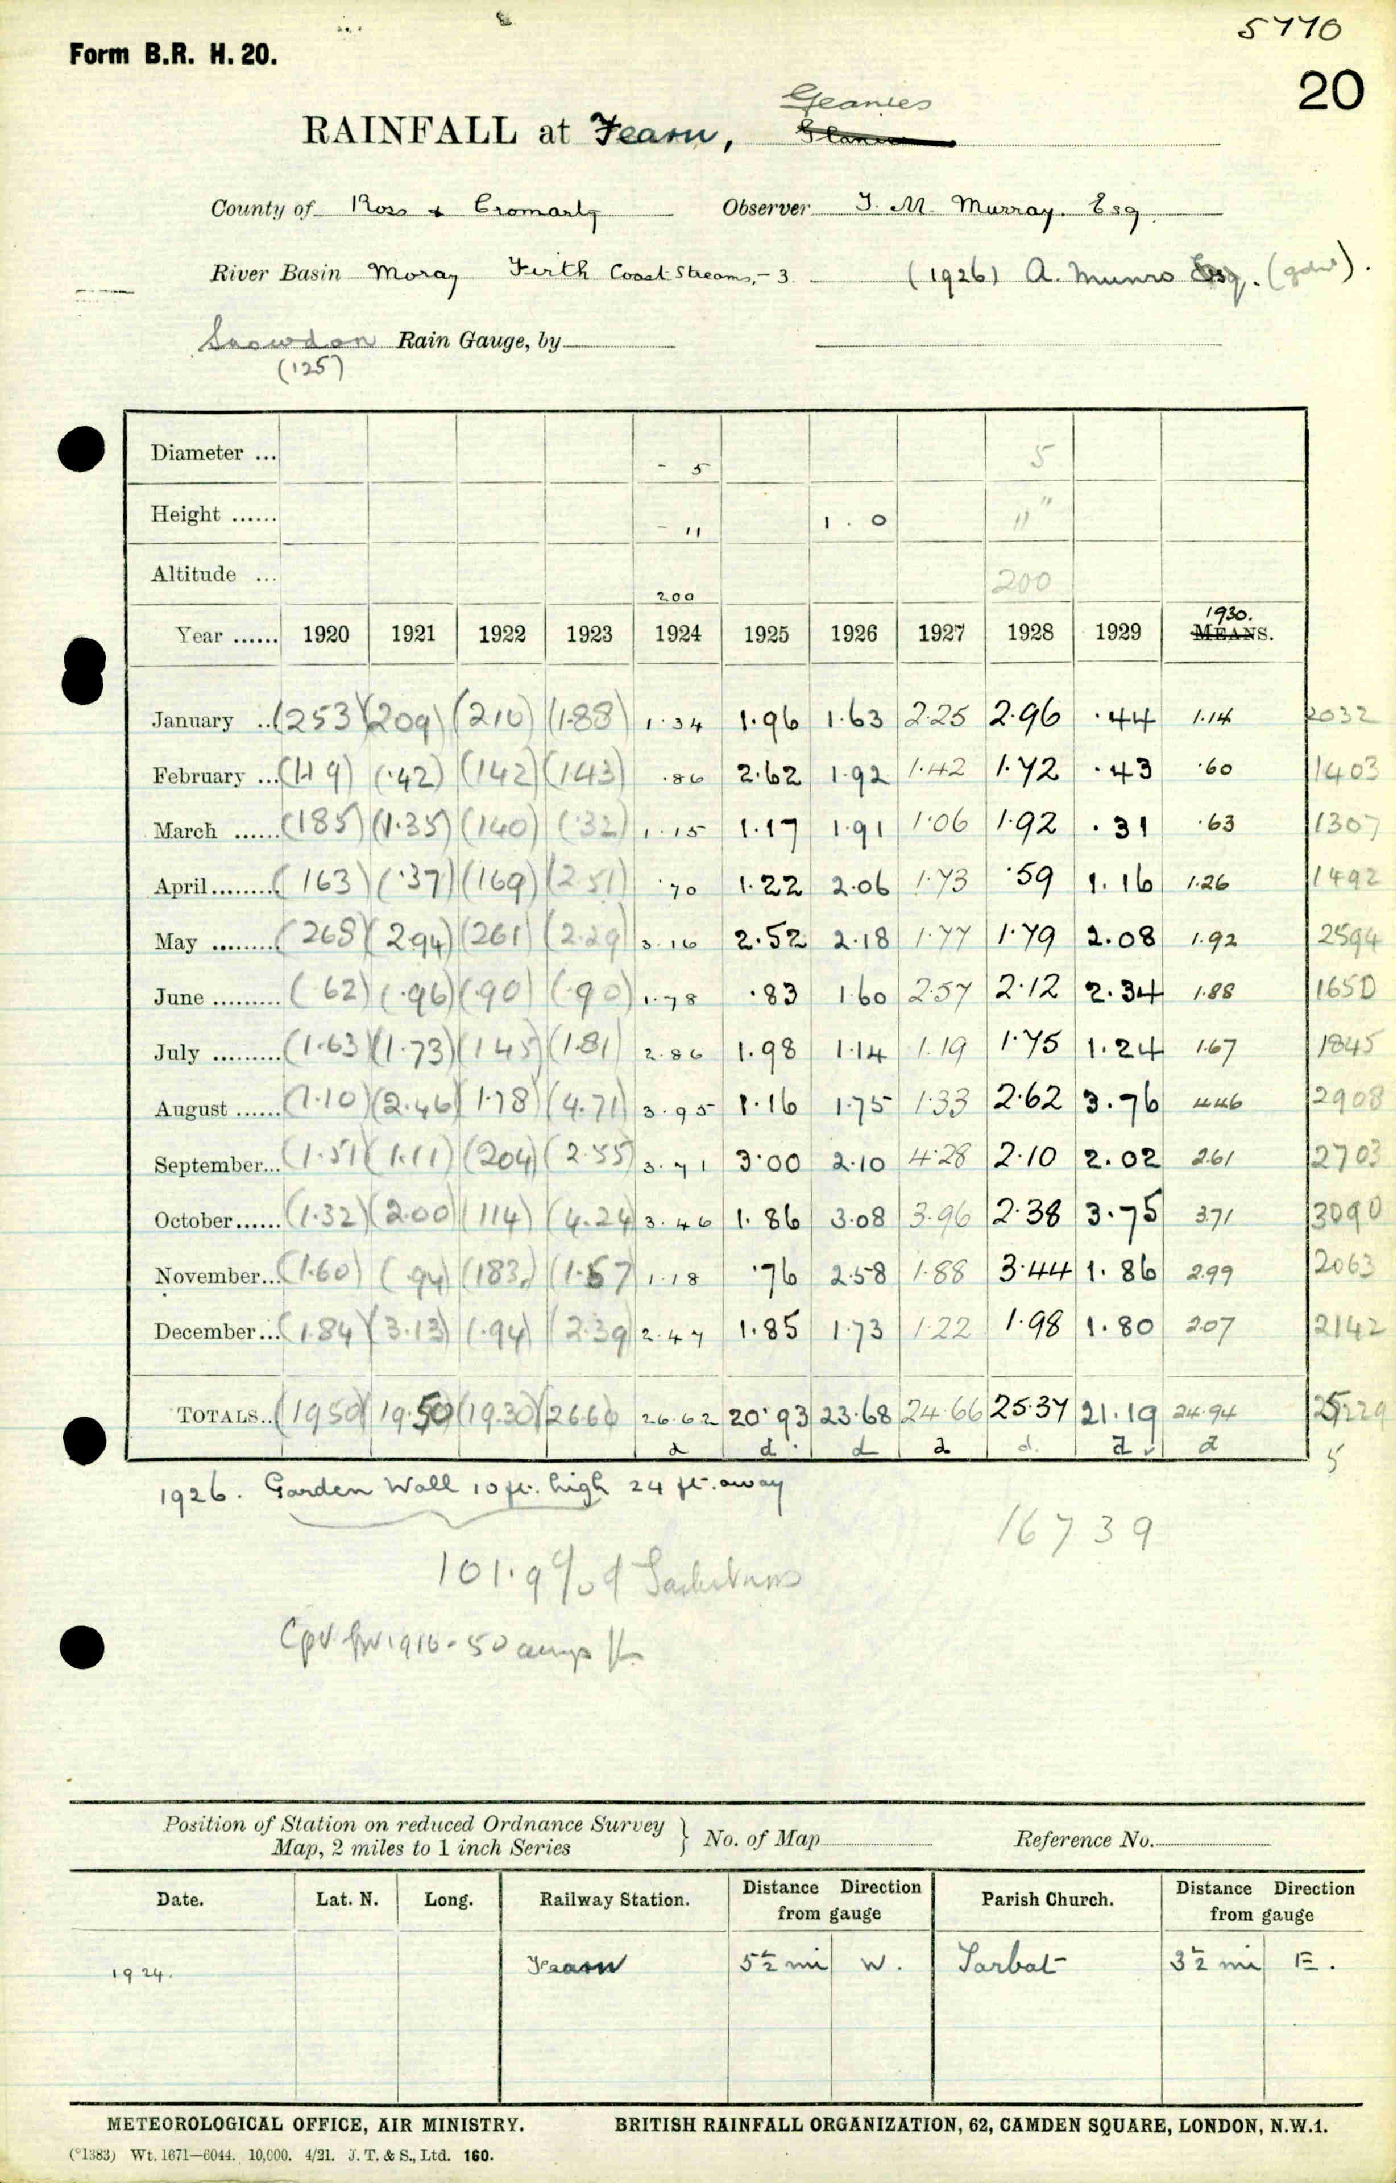 5770
Form B.R. H. 20.
20
Geanies
RAINFALL at Fearn,
County of Ross & Cromarty Observer T. M. Murray. Esq.
River Basin Moray Firth Coast Streams, - 3 (1926) A. Munro Esq. (gdnr).
Snowdon Rain Gauge, by
(125)
Diameter ... - 5 5
Height ...... - 11 1 . 0 11"
Altitude ... 200 200
1930.
Year ...... 1920 1921 1922 1923 1924 1925 1926 1927 1928 1929 MEANS.
January .. (253) (209) (210) (1.88) 1.34 1.96 1.63 2.25 2.96 .44 1.14 2032
February ... (119) (.42) (142) (143) .86 2.62 1.92 1.42 1.72 .43 .60 1403
March ...... (185) (1.35) (140) (.32) 1.15 1.17 1.91 1.06 1.92 .31 .63 1307
April........ (163) (.37) (169) (2.51) .70 1.22 2.06 1.73 .59 1.16 1.26 1492
May ........ (268) (2.94) (261) (2.29) 3.16 2.52 2.18 1.77 1.79 2.08 1.92 2594
June ......... (62) (.96) (.90) (.90) 1.78 .83 1.60 2.57 2.12 2.34 1.88 1650
July ......... (1.63) (1.73) (145) (1.81) 2.86 1.98 1.14 1.19 1.75 1.24 1.67 1845
August ...... (1.10) (2.46) 1.78 (4.71) 3.95 1.16 1.75 1.33 2.62 3.76 4.46 2908
September... (1.51) (1.11) (204) (2.55) 3.71 3.00 2.10 4.28 2.10 2.02 2.61 2703
October...... (1.32) (2.00) (114) (4.24) 3.46 1.86 3.08 3.96 2.38 3.75 3.71 3090
November... (1.60) (.94) (183) (1.57) 1.18 .76 2.58 1.88 3.44 1.86 2.99 2063
December... (1.84) (3.13) (1.94) (2.39) 2.47 1.85 1.73 1.22 1.98 1.80 2.07 2142
TOTALS.. (1950) (19.50) (19.30) (26.60) 26.62 20.93 23.68 24.66 25.37 21.19 24.94 25229
d d d d d. d d 5
1926. Garden Wall 10 ft. high 24 ft. away
16739
101.9% of
1916-50
Position of Station on reduced Ordnance Survey
Map, 2 miles to 1 inch Series } No. of Map Reference No.
Date. Lat. N. Long. Railway Station. Distance Direction from gauge Parish Church. Distance Direction from gauge
1924. Fearn 5½ mi W. Tarbat 3½ mi E.
METEOROLOGICAL OFFICE, AIR MINISTRY. BRITISH RAINFALL ORGANIZATION, 62, CAMDEN SQUARE, LONDON, N.W.1.
(°1383) Wt. 1671—6044. 10,000. 4/21. J. T. & S., Ltd. 160.